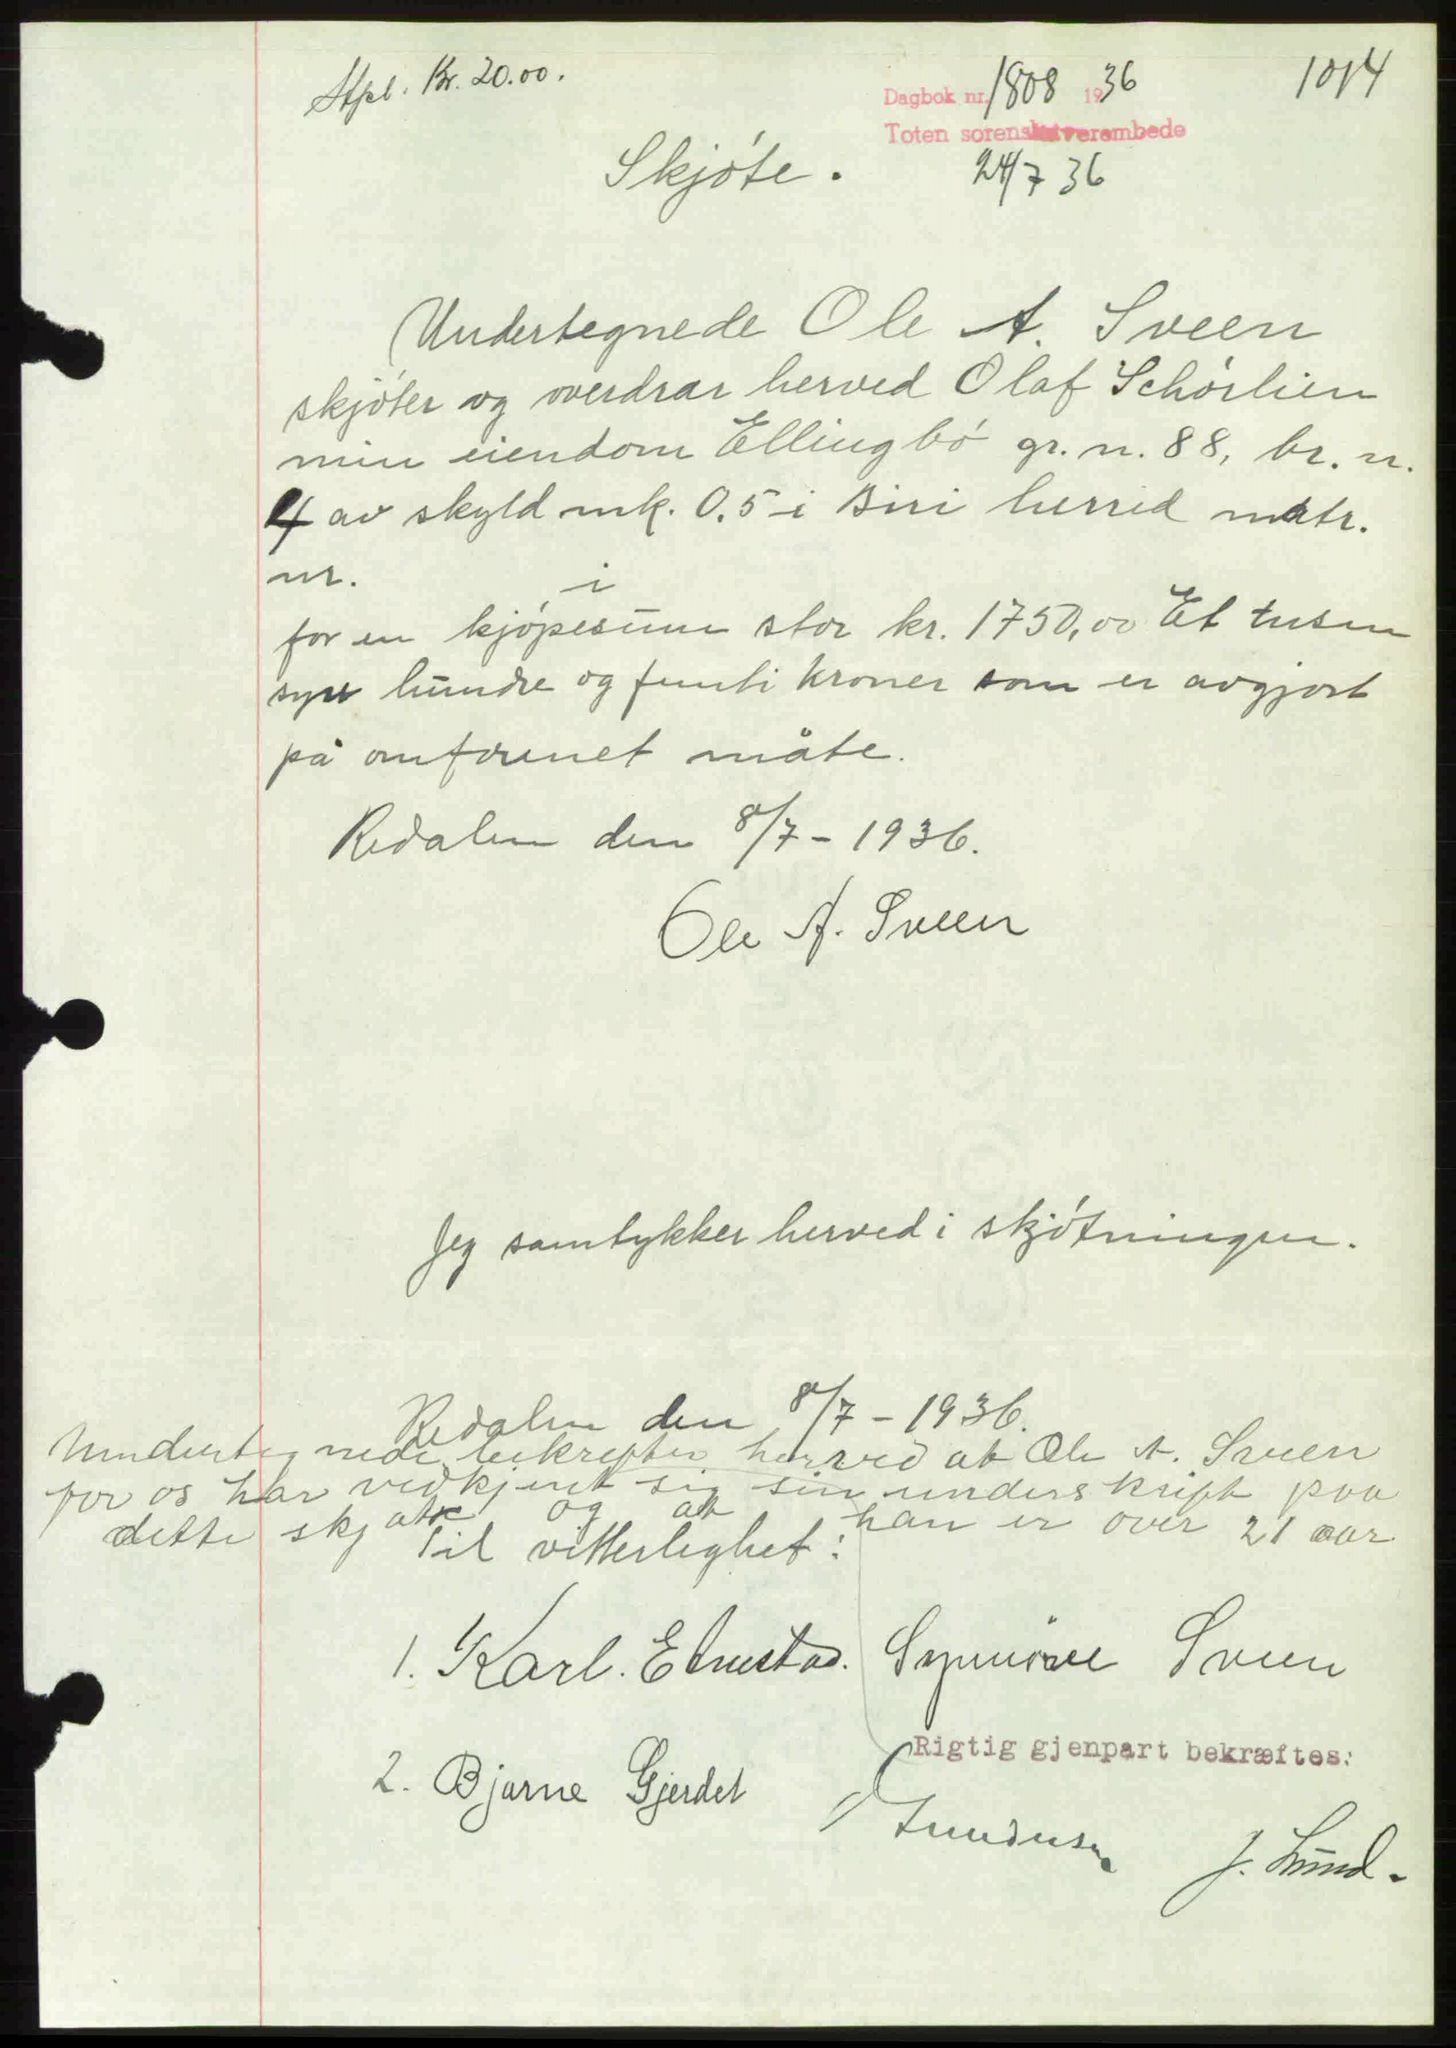 Stpl. Kr. 20.00.
Dagbok nr. 1808 1936
1014
Toten sorenskriverembede
24/7 36
Skjøte.
Undertegnede Ole A. Sveen
skjöter og overdrar herved Olaf Schörlien
min eiendom Ellingbö gr. n. 88, br. n.
4 av skyld mk. 0.5 i Biri herred matr.
nr. i
for en kjöpesum stor kr. 1750,00 Et tusen
syv hundre og femti kroner som er avgjort
på omforenet måte.
Redalen den 8/7 - 1936.
Ole A. Sveen
Jeg samtykker herved i skjötningen.
Redalen den 8/7 - 1936.
Undertegnede bekrefter herved at Ole A. Sveen
for os har vedkjent sig sin underskrift paa
dette skjøte og at han er over 21 aar
Til vitterlighet:
1. Karl. Synnöve Sveen
2. Bjarne Gjerdet
Rigtig gjenpart bekræftes:
J. Lund.